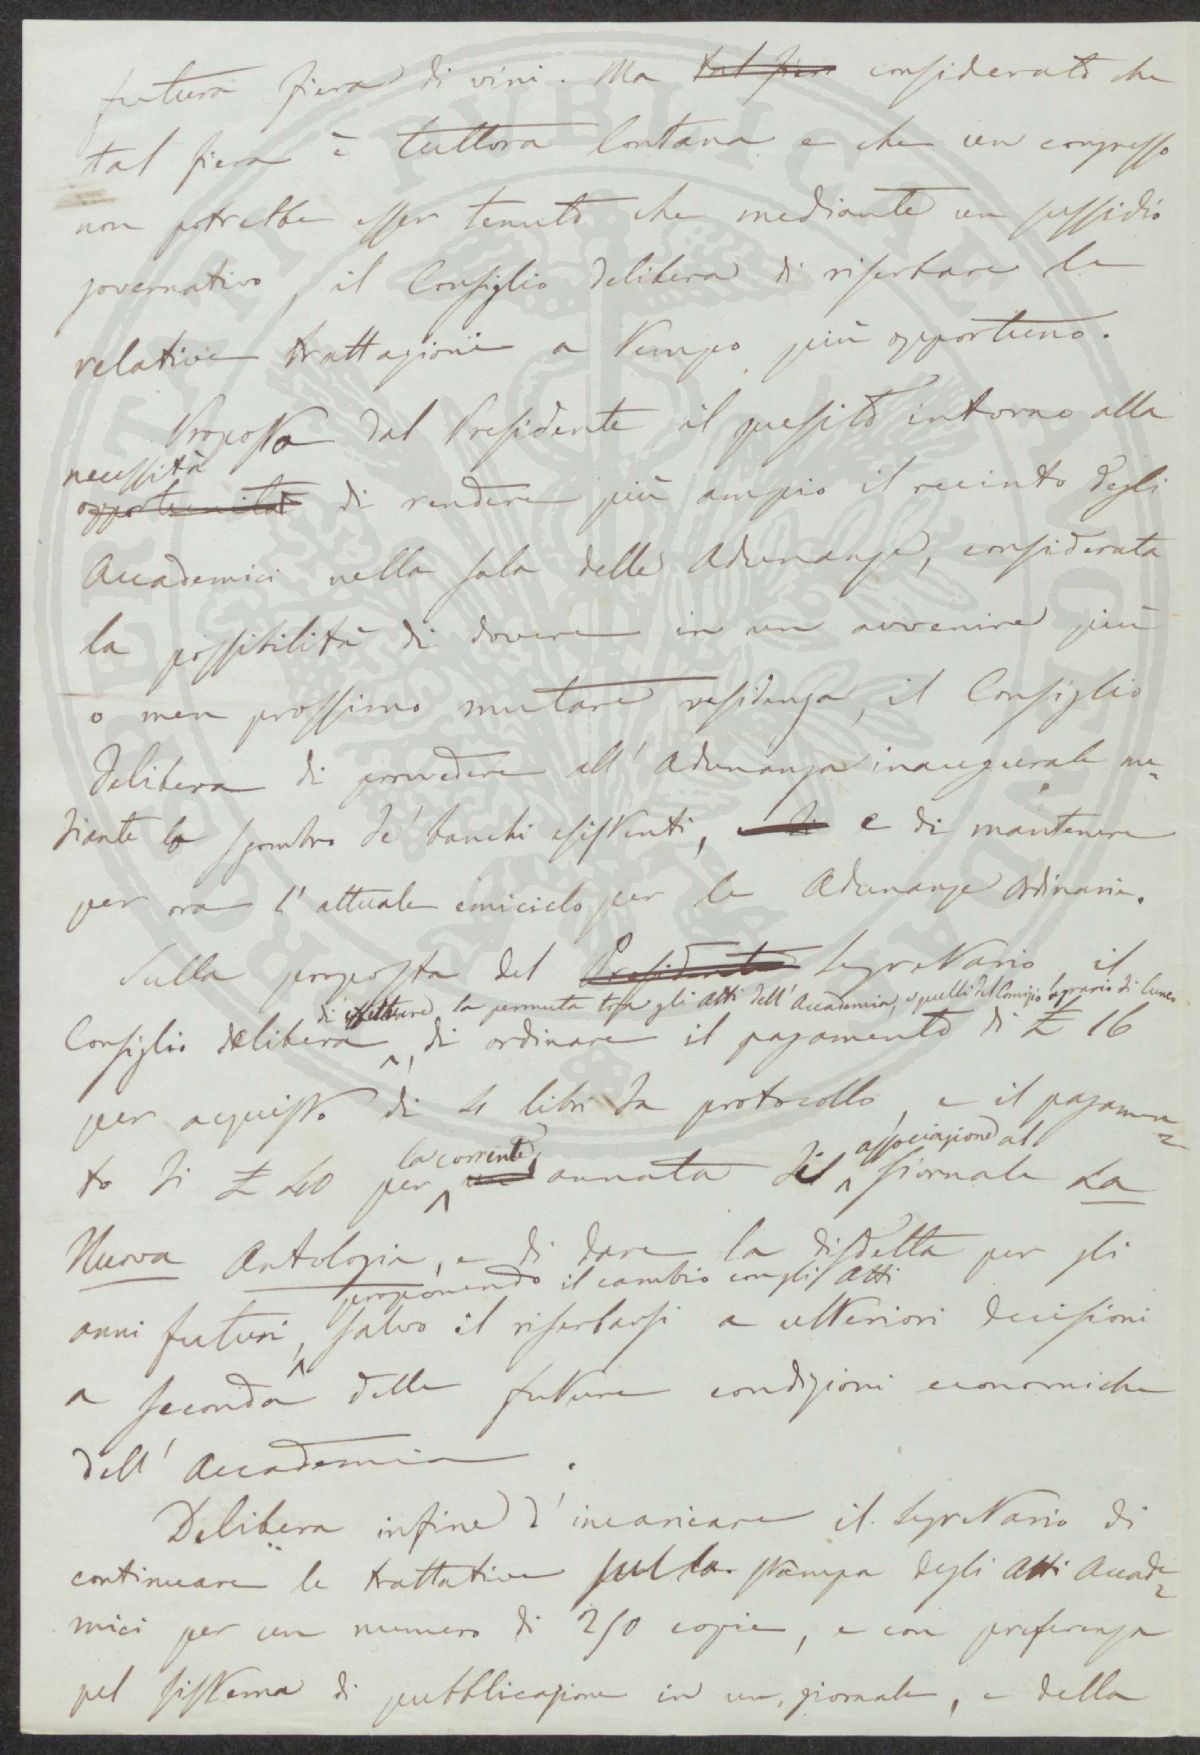 futura fiera di vini. Ma tal fiera considerato che
tal fiera è tuttora lontana e che un congresso
non potrebbe esser tenuto che mediante un sussidio
governativo, il Consiglio delibera di riserbare le
relative trattazioni a tempo più opportuno.
Proposto dal Presidente il quesito intorno alla
necessità
opportunità di rendere più ampio il recinto degli
Accademici nella sala delle Adunanze, considerata
la possibilità di dovere in un avvenire più
o men prossimo mutare residenza, il Consiglio
delibera di provvedere all'Adunanza inaugurale me-
diante lo sgombro de' banchi esistenti, e di e di mantenere
per ora l'attuale emiciclo per le Adunanze ordinarie.
Sulla proposta del Presidente Segretario il
di effettuare la permuta tra gli Atti dell'Accademia, e quelli del Comizio Agrario di Cuneo
Consiglio delibera, di ordinare il pagamento di £ 16
per acquisto di 4 libri da protocollo, e il pagamen-
la corrente associazione al
to di £ 40 per annata di giornale La
Nuova Antologia, e di dare la disdetta per gli
proponendo il cambio cogli Atti
anni futuri, salvo il riserbarsi a ulteriori decisioni
a seconda delle future condizioni economiche
dell'Accademia.
Delibera infine d'incaricare il Segretario di
continuare le trattative sulla stampa degli Atti Accade-
mici per un numero di 250 copie, e con preferenza
pel sistema di pubblicazione in un giornale, e della